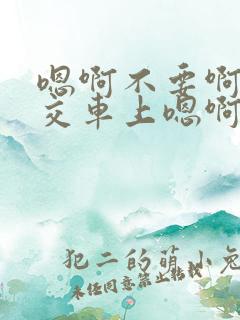 嗯啊不要啊
交车上嗯啊
犯二的萌小兔
未经同意禁止转载